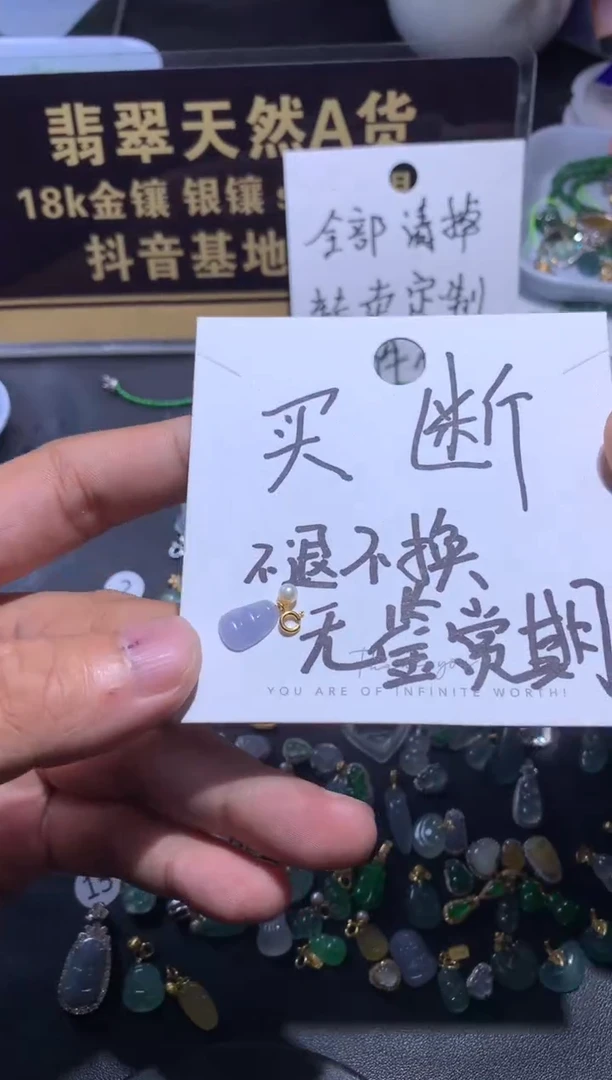 翡翠天然A货
18k金镶 银镶 s
抖音基地
日
全部清掉
转卖定制
件
买断
不退不换
无鉴赏期
YOU ARE OF INFINITE WORTH!
2
15